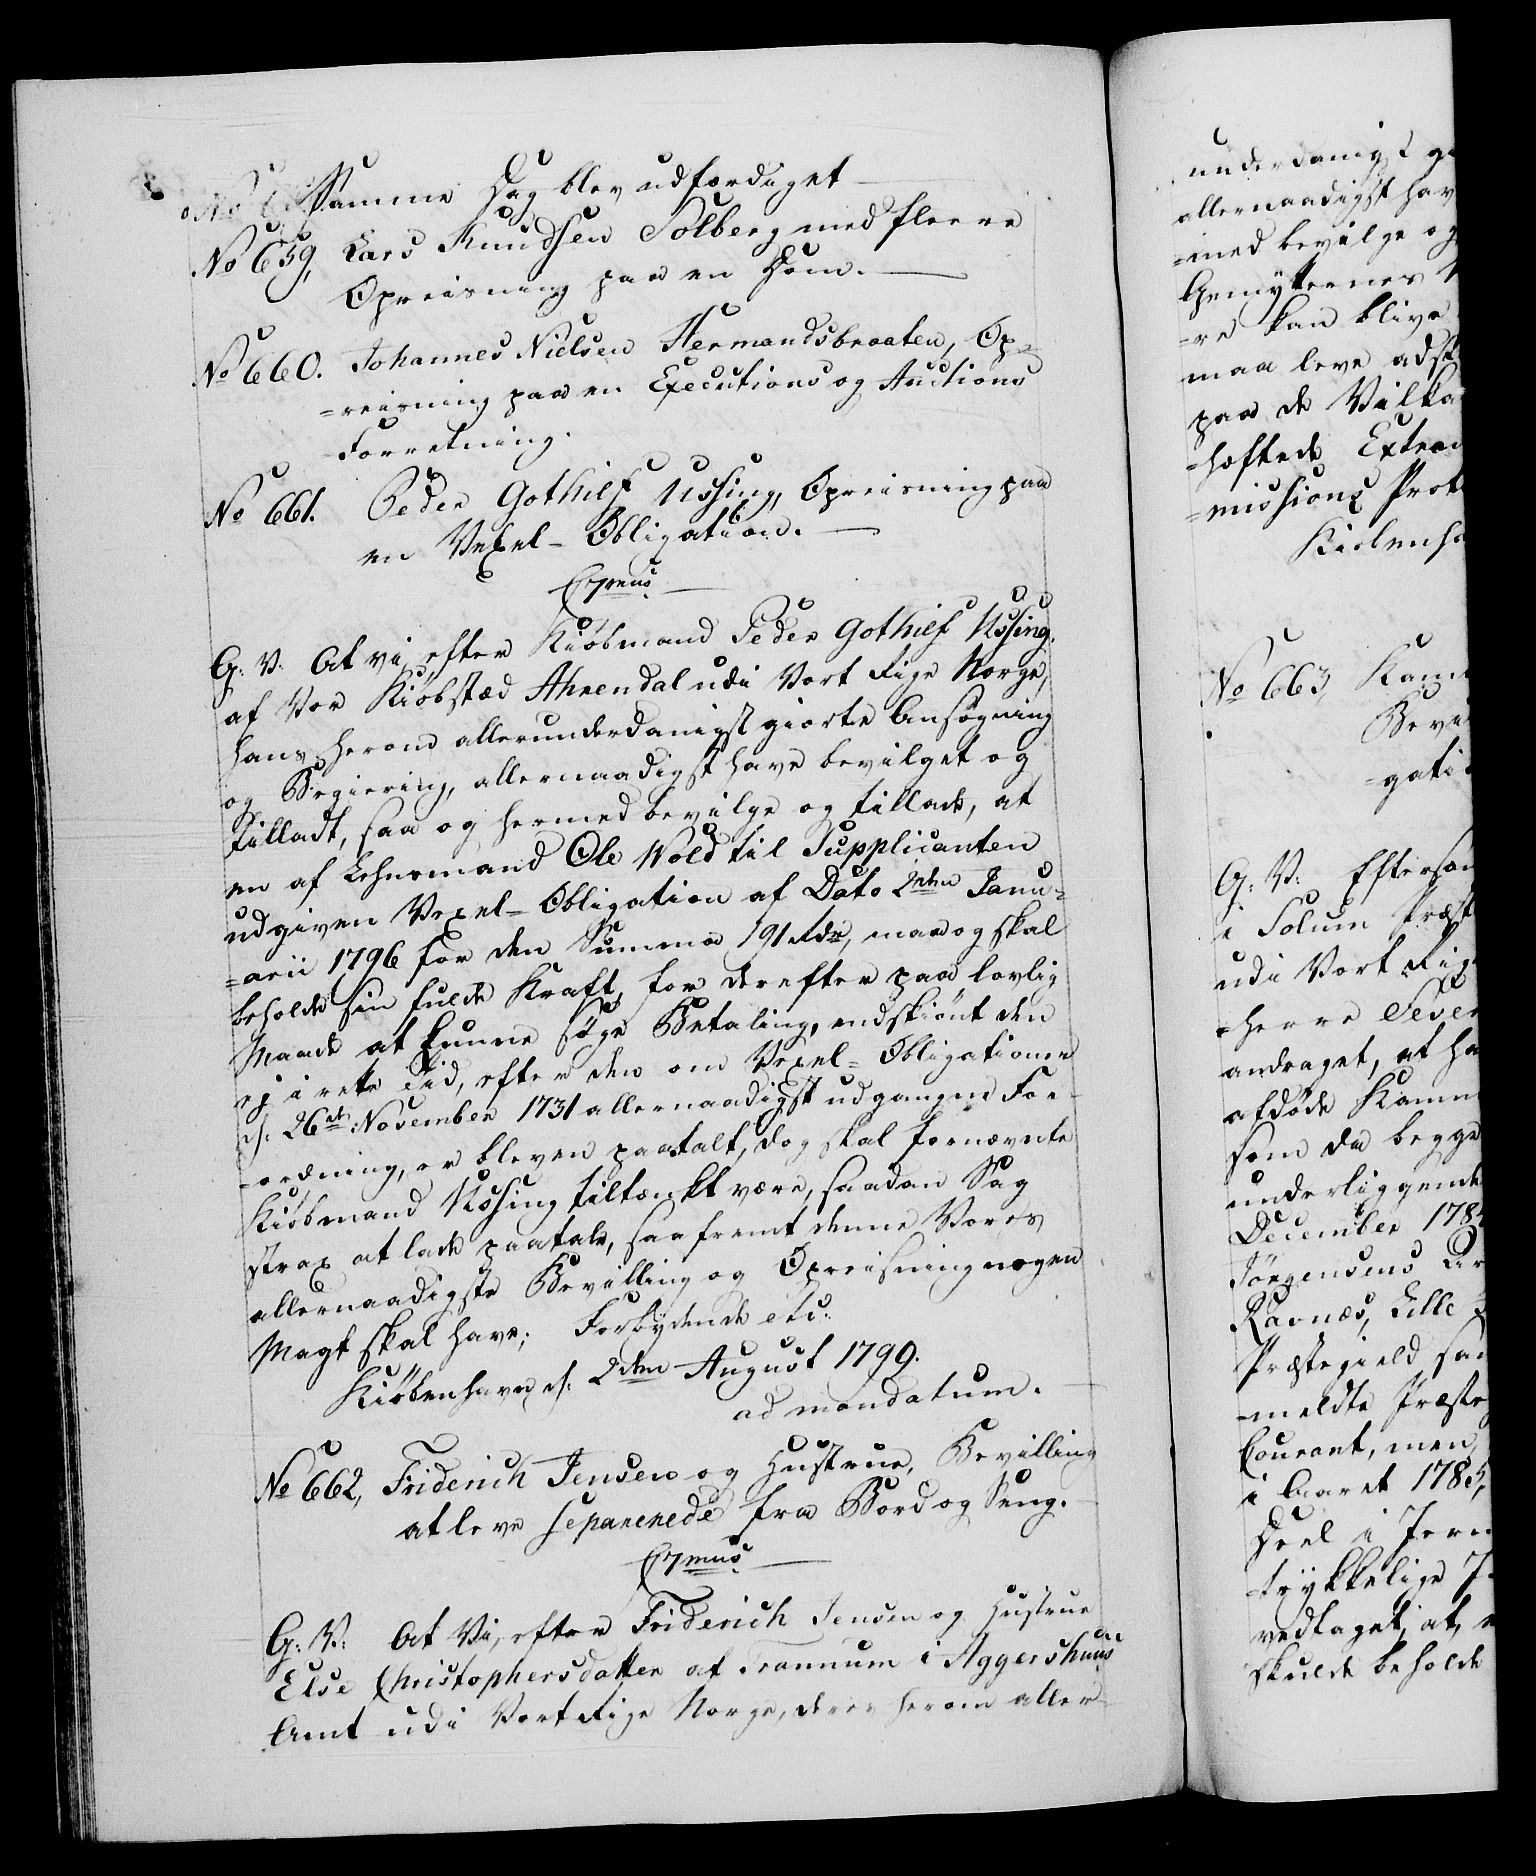 Samme Dag blev udfærdiget
No 659, Lars Knudsen Solberg med fleere
Opreisning paa en Dom.
No 660. Johannes Nielsen Hermandsbraaten, Op-
-reisning paa en Executions og Auctions
Forretning.
No 661. Peder Gothilf Ussing, Opreisning paa
en Vexel-Obligation.
G: V: At vi, efter Kiøbmand Peder Gothilf Ussing,
af Vor Kiøbstæd Ahrendal udi Vort Rige Norge,
hans herom allerunderdanigst giorte Ansøgning
og Begiering, allernaadigst have bevilget og
tilladt, saa og hermed bevilge og tillade, at
en af Lehnsmand Ole Wold til Supplicanten
udgiven Vexel-Obligation af Dato 2den Janu-
-arii 1796 for den Summa 191 Rdr, maa og skal
beholde sin fulde Kraft, for derefter paa lovlig
Maade at kunne søge Betaling, endskiønt den
ej i rette Tid, efter den om Vexel-Obligationer
d: 26de November 1731 allernaadigst udgangne For-
-ordning, er bleven paatalt, dog skal fornævnte
Kiøbmand Ussing tiltænkt være, saadan Sag
strax at lade paatale, saafremt denne Vores
allernaadigste Bevilling og Opreisning nogen
Magt skal have; Forbydende etc:
Kiøbenhavn d: 2den August 1799.
ad mandatum.
No 662, Friderich Jensen og Hustrue, Bevilling
at leve separerede fra Bord og Seng.
G: V: At Vi, efter Friderich Jensen og Hustrue
Else Christophersdatter af Trannum i Aggershuus
Amt udi Vort Rige Norge, deres herom aller-
underdanigst
allernaadigst hav
-med bevilge og
Gemytternes
-re kan blive
maa leve adsk
paa de Vilka
-hæftede Extra
-missions Prot
Kiøbenha
No 663, Kam
Bevi
-gati
G: V: Eftersom
i Solum Præst
udi Vort Rig
-herre Sever
andraget, at ha
afdøde Kamm
som da begge
underliggende
December 178
Jørgensens
Ravnæs, Lille
Præstegield sa
-meldte Præste
Courant, men
i Aaret 1785,
Deel i Jern
-trykkelige
vedtaget, at
skulde beholde